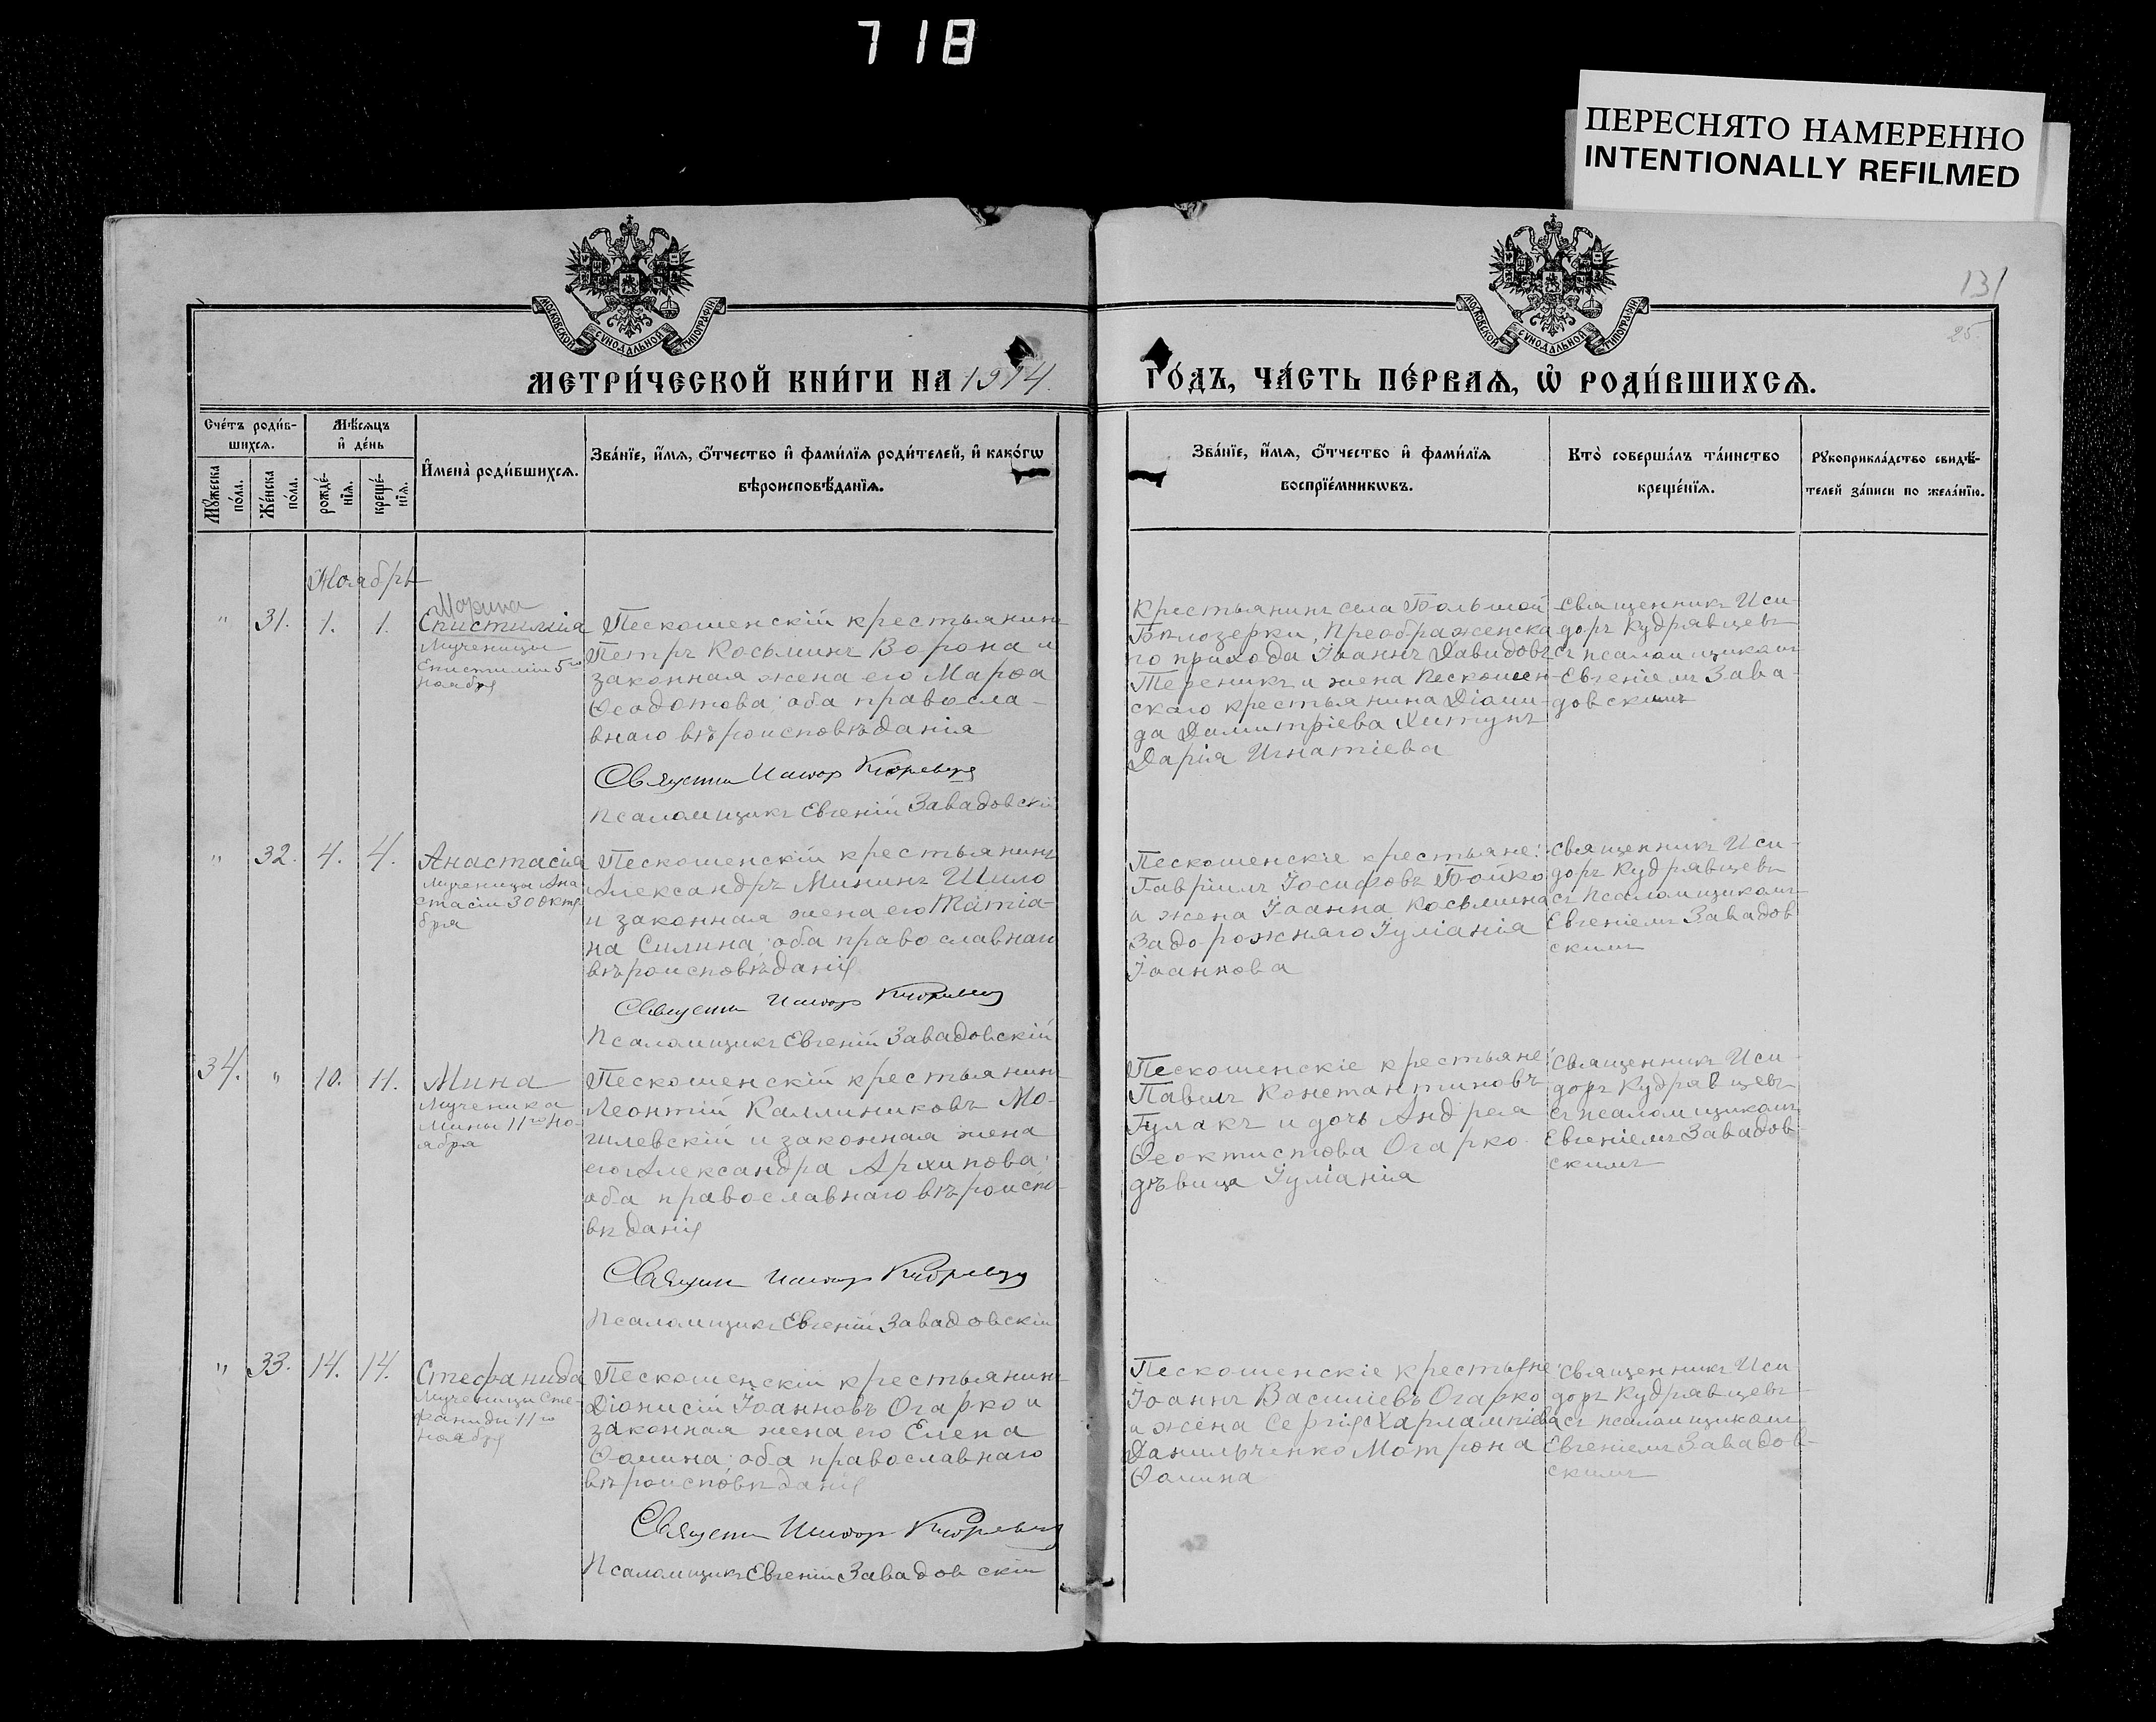 718
ПЕРЕСНЯТО НАМЕРЕННО
INTENTIONALLY REFILMED
131
25.
МОСКОВСКОЙ СѴНОДАЛЬНОЙ ТИПОГРАФІИ
МОСКОВСКОЙ СѴНОДАЛЬНОЙ ТИПОГРАФІИ
МЕТРИ́ЧЕСКОЙ КНИ́ГИ НА 1914.
ГО́ДЪ, ЧА́СТЬ ПЕ́РВАѦ, Ѽ РОДИ́ВШИХСѦ.
Сче́тъ роди́в-
шихсѧ.
Мѣ́сѧцъ
и҆ де́нь
Мꙋ́жеска
по́ла.
Же́нска
по́ла.
рожде́-
нїѧ.
креще́-
нїѧ.
И҆мена̀ роди́вшихсѧ.
Зва́нїе, и҆́мѧ, ѻ҆́тчество и҆ фами́лїѧ роди́телей, и҆ како́гѡ
вѣроисповѣ́данїѧ.
Зва́нїе, и҆́мѧ, ѻ҆́тчество и҆ фами́лїѧ
воспрїе́мникѡвъ.
Кто̀ соверша́лъ та́инство
креще́нїѧ.
Рꙋкоприкла́дство свидѣ́-
телей за́писи по жела́нїю.
Ноябрь
" 31. 1. 1.
Марина
Епистимія
Мученицы
Епистиміи 5го
ноября
Пескошенскій крестьянинъ
Петръ Косьминъ Ворона и
законная жена его Марѳа
Ѳеодотова; оба правосла-
внаго вѣроисповѣданія
Священни Исидор Кудрявцев
Псаломщикъ Евгеній Завадовскій
Крестьянинъ села Большой
Бѣлозерки, Преображенска
го прихода Іоаннъ Давидовъ
Тереникъ и жена Пескошен-
скаго крестьянина Діоми-
да Димитріева Хитунъ
Дарія Игнатіева
Священникъ Иси-
доръ Кудрявцевъ
съ псаломщикомъ
Евгеніемъ Зава-
довскимъ
" 32. 4. 4.
Анастасія
Мученицы Ана
стасіи 30 октя
бря
Пескошенскій крестьянинъ
Александръ Мининъ Шило
и законная жена его Татіа-
на Силина; оба православнаго
вѣроисповѣданія
Священни Исидор Кудрявцев
Псаломщикъ Евгеній Завадовскій
Пескошенскіе крестьяне:
Гавріилъ Іосифовъ Бойко
и жена Іоанна Косьмина
Задорожняго Іуліанія
Іоаннова
Священникъ Иси-
доръ Кудрявцевъ
съ псаломщикомъ
Евгеніемъ Завадов
скимъ
34. " 10. 11.
Мина
Мученика
Мины 11го но-
ября
Пескошенскій крестьянинъ
Леонтій Каллиниковъ Мо-
гилевскій и законная жена
его Александра Архипова;
оба православнаго вѣроиспо-
вѣданія
Священни Исидор Кудрявцев
Псаломщикъ Евгеній Завадовскій
Пескошенскіе крестьяне:
Павелъ Константиновъ
Гулакъ и дочь Андрея
Ѳеоктистова Огарко
дѣвица Іуліанія
Священникъ Иси-
доръ Кудрявцевъ
съ псаломщикомъ
Евгеніемъ Завадов-
скимъ
" 33. 14. 14.
Стефанида
Мученицы Сте-
фаниды 11го
ноября
Пескошенскій крестьянинъ
Діонисій Іоанновъ Огарко и
законная жена его Елена
Ѳомина; оба православнаго
вѣроисповѣданія
Священни Исидор Кудрявцев
Псаломщикъ Евгеній Завадовскій
Пескошенскіе крестьяне:
Іоаннъ Василіевъ Огарко
и жена Сергія Харлампіева
Данильченко Матрона
Ѳомина
Священникъ Иси-
доръ Кудрявцевъ
съ псаломщикомъ
Евгеніемъ Завадов-
скимъ